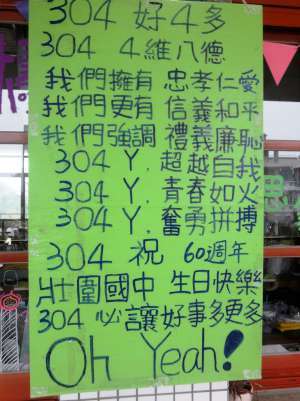 304 好4多
304 4維八德
我們擁有 忠孝仁愛
我們更有 信義和平
我們強調 禮義廉恥
304 Y. 超越自我
304 Y. 青春如火
304 Y. 奮勇拼搏
304 祝 60週年
壯圍國中 生日快樂
304 必讓好事多更多
Oh Yeah!